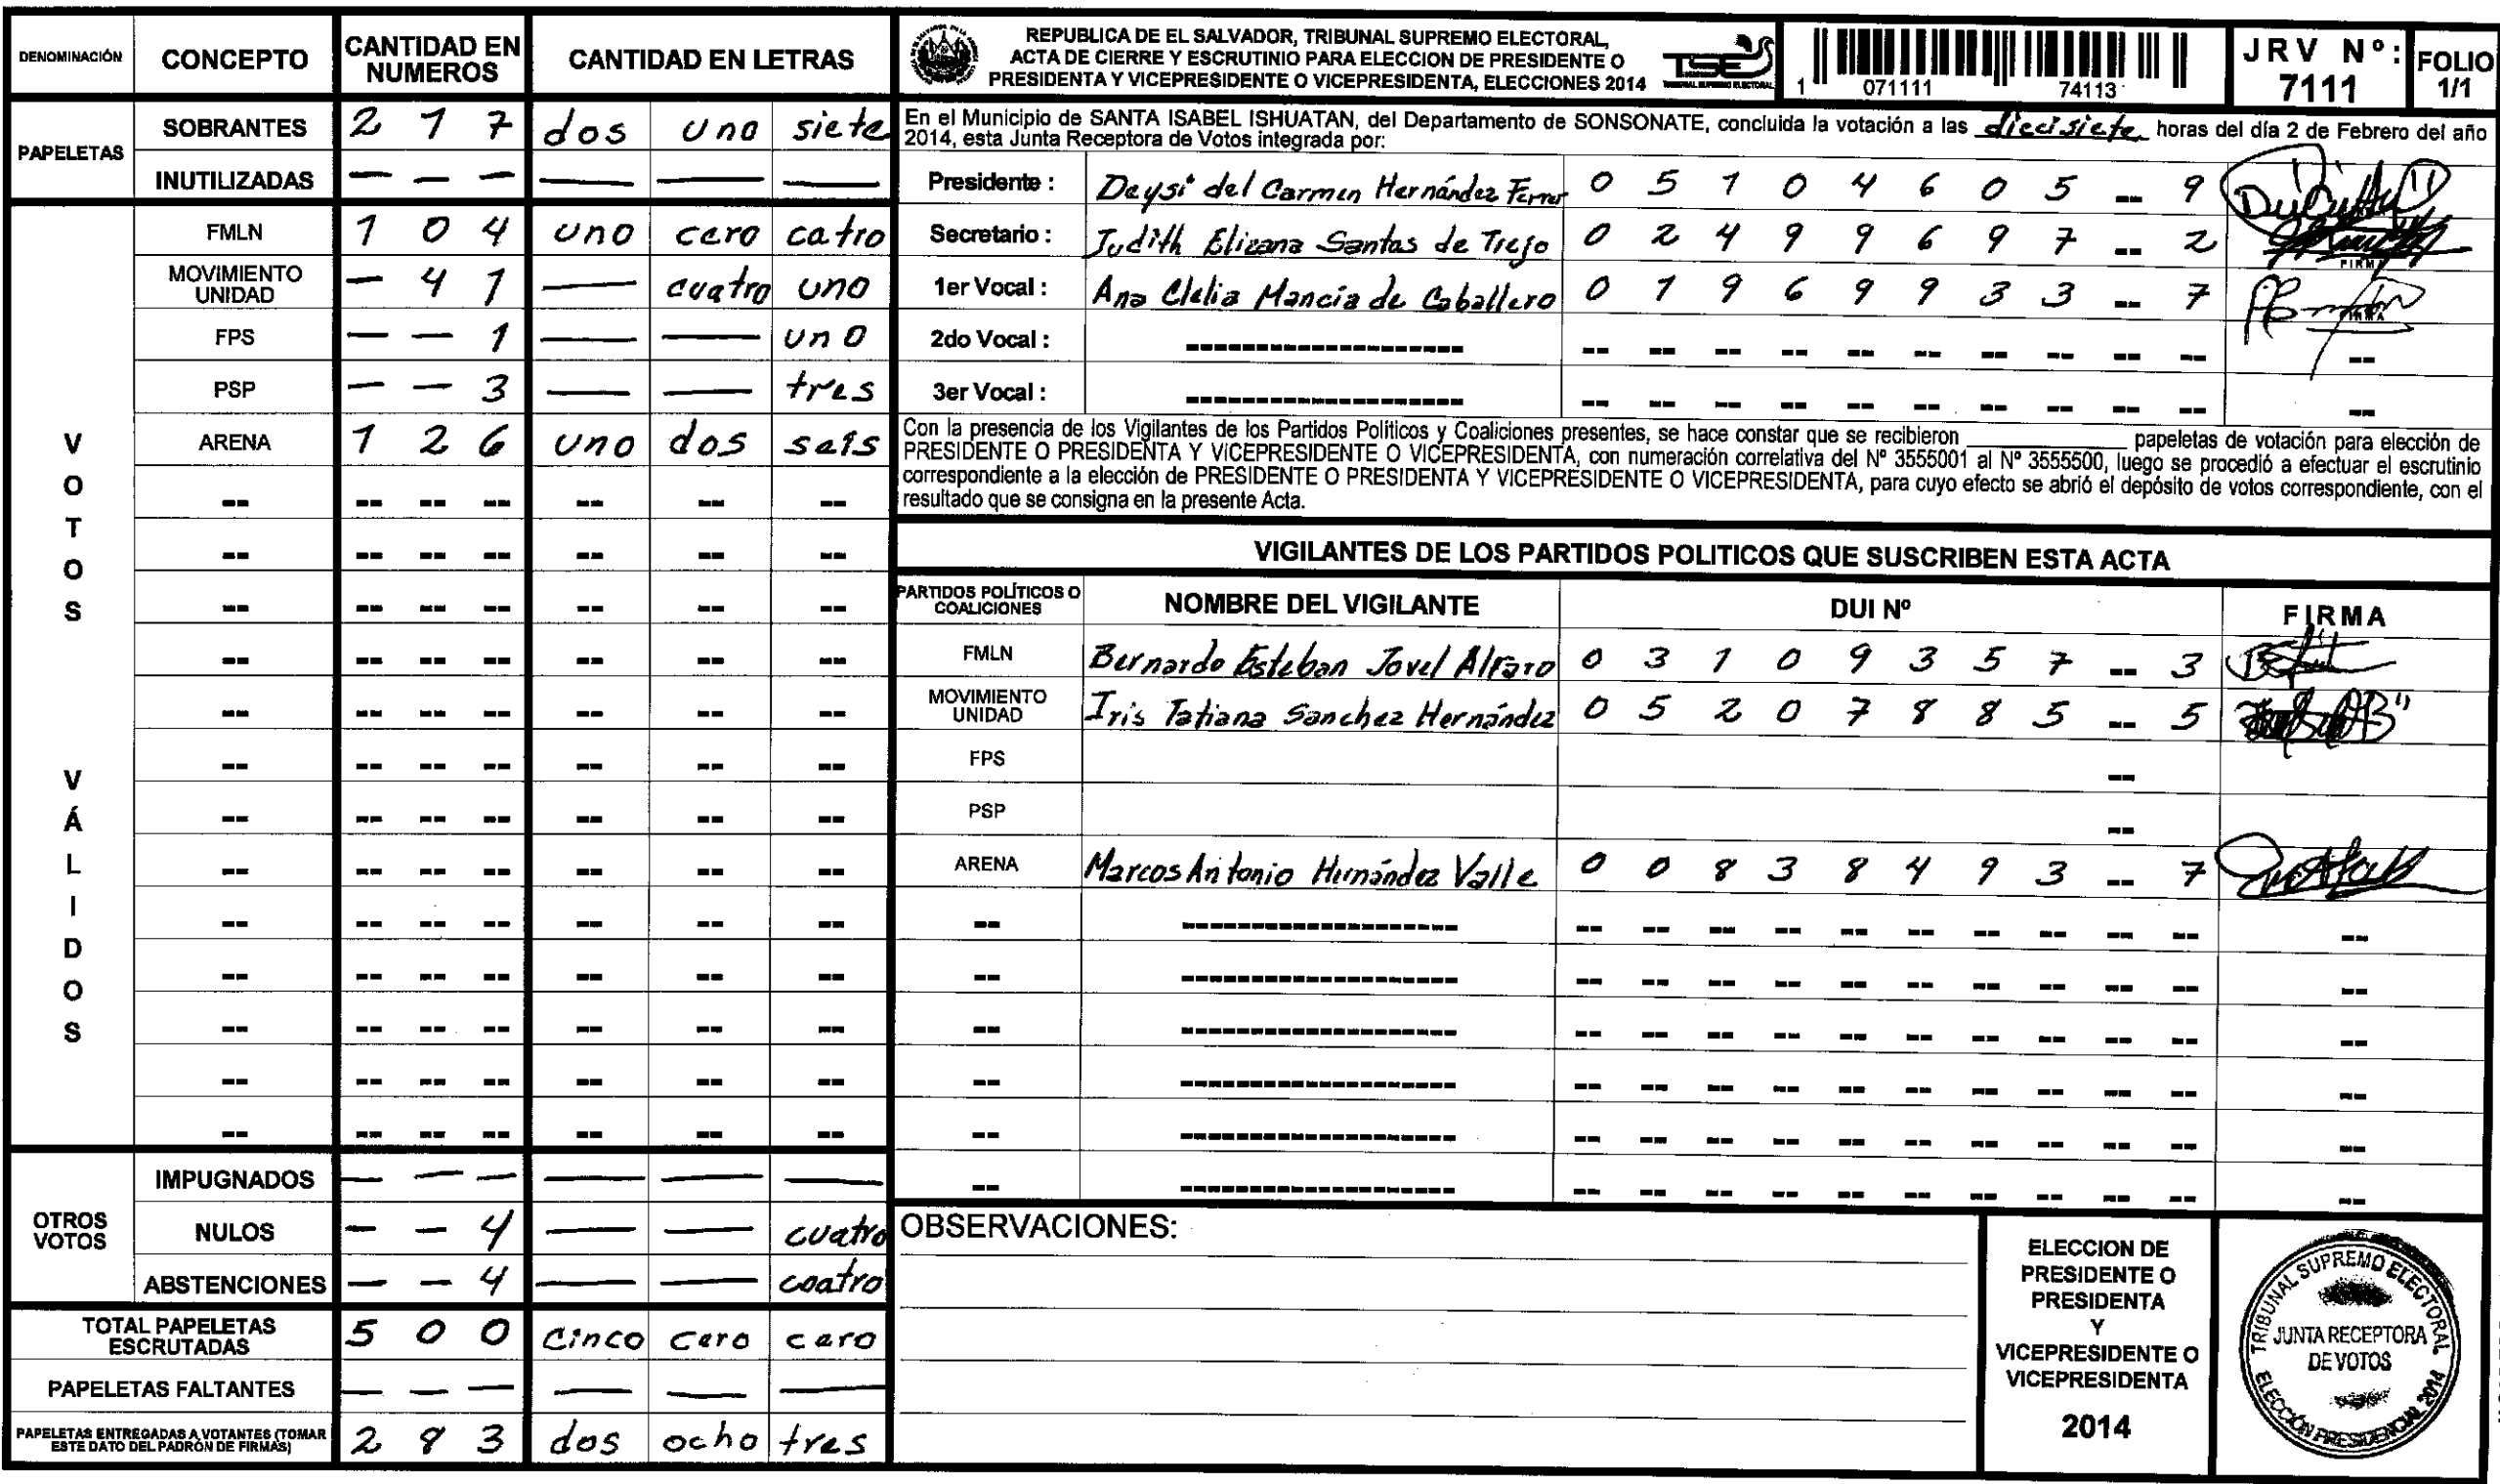 DENOMINACIÓN CONCEPTO CANTIDAD EN NUMEROS CANTIDAD EN LETRAS
PAPELETAS
SOBRANTES 2 1 7 dos uno siete
INUTILIZADAS — — — — — —
VOTOS VÁLIDOS
FMLN 1 0 4 uno cero catro
MOVIMIENTO UNIDAD — 4 1 — cuatro uno
FPS — — 1 — — uno
PSP — — 3 — — tres
ARENA 1 2 6 uno dos seis
-- -- -- -- -- -- --
-- -- -- -- -- -- --
-- -- -- -- -- -- --
-- -- -- -- -- -- --
-- -- -- -- -- -- --
-- -- -- -- -- -- --
-- -- -- -- -- -- --
-- -- -- -- -- -- --
-- -- -- -- -- -- --
-- -- -- -- -- -- --
-- -- -- -- -- -- --
-- -- -- -- -- -- --
-- -- -- -- -- -- --
OTROS VOTOS
IMPUGNADOS — — — — — —
NULOS — — 4 — — cuatro
ABSTENCIONES — — 4 — — coatro
TOTAL PAPELETAS ESCRUTADAS 5 0 0 cinco cero cero
PAPELETAS FALTANTES — — — — — —
PAPELETAS ENTREGADAS A VOTANTES (TOMAR ESTE DATO DEL PADRÓN DE FIRMAS) 2 8 3 dos ocho tres
REPUBLICA DE EL SALVADOR, TRIBUNAL SUPREMO ELECTORAL,
ACTA DE CIERRE Y ESCRUTINIO PARA ELECCION DE PRESIDENTE O
PRESIDENTA Y VICEPRESIDENTE O VICEPRESIDENTA, ELECCIONES 2014
TSE
TRIBUNAL SUPREMO ELECTORAL
1 071111 74113
JRV Nº: 7111
FOLIO 1/1
En el Municipio de SANTA ISABEL ISHUATAN, del Departamento de SONSONATE, concluida la votación a las diecisiete horas del día 2 de Febrero del año
2014, esta Junta Receptora de Votos integrada por:
Presidente : Deysi del Carmen Hernández Ferrer 0 5 1 0 4 6 0 5 -- 9
Secretario : Judith Elizana Santos de Trejo 0 2 4 9 9 6 9 7 -- 2
FIRMA
1er Vocal : Ana Clelia Mancía de Caballero 0 1 9 6 9 9 3 3 -- 7
FIRMA
2do Vocal : ------------------ -- -- -- -- -- -- -- -- -- -- --
3er Vocal : ------------------ -- -- -- -- -- -- -- -- -- -- --
Con la presencia de los Vigilantes de los Partidos Políticos y Coaliciones presentes, se hace constar que se recibieron ____________ papeletas de votación para elección de
PRESIDENTE O PRESIDENTA Y VICEPRESIDENTE O VICEPRESIDENTA, con numeración correlativa del Nº 3555001 al Nº 3555500, luego se procedió a efectuar el escrutinio
correspondiente a la elección de PRESIDENTE O PRESIDENTA Y VICEPRESIDENTE O VICEPRESIDENTA, para cuyo efecto se abrió el depósito de votos correspondiente, con el
resultado que se consigna en la presente Acta.
VIGILANTES DE LOS PARTIDOS POLITICOS QUE SUSCRIBEN ESTA ACTA
PARTIDOS POLÍTICOS O COALICIONES NOMBRE DEL VIGILANTE DUI Nº FIRMA
FMLN Bernardo Esteban Jovel Alfaro 0 3 1 0 9 3 5 7 -- 3
MOVIMIENTO UNIDAD Iris Tatiana Sanchez Hernández 0 5 2 0 7 8 8 5 -- 5
FPS --
PSP --
ARENA Marcos Antonio Hernández Valle 0 0 8 3 8 4 9 3 -- 7
-- ------------------ -- -- -- -- -- -- -- -- -- -- --
-- ------------------ -- -- -- -- -- -- -- -- -- -- --
-- ------------------ -- -- -- -- -- -- -- -- -- -- --
-- ------------------ -- -- -- -- -- -- -- -- -- -- --
-- ------------------ -- -- -- -- -- -- -- -- -- -- --
-- ------------------ -- -- -- -- -- -- -- -- -- -- --
OBSERVACIONES:
ELECCION DE
PRESIDENTE O
PRESIDENTA
Y
VICEPRESIDENTE O
VICEPRESIDENTA
2014
TRIBUNAL SUPREMO ELECTORAL
JUNTA RECEPTORA
DE VOTOS
ELECCIÓN PRESIDENCIAL 2014